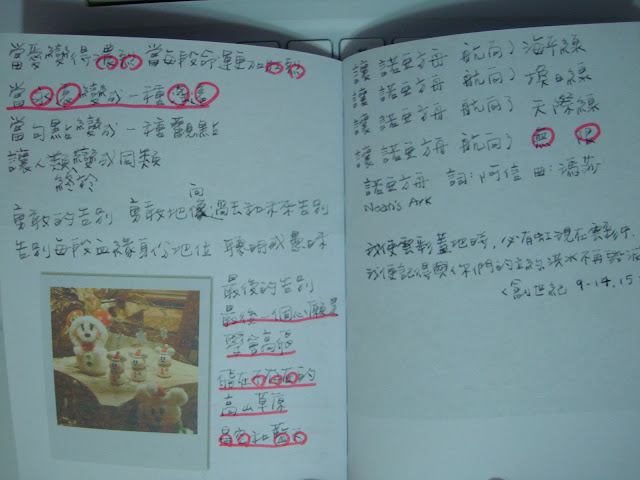 當愛變得 當每段命運
當永遠變成一種
當句點變成一種觀點
讓人類變成同類
終於
向
勇敢的告別 勇敢地 過去和未來告別
告別每段血緣身份地位 聰明或愚昧
最後的告別
最後一個心願是
學會高飛
能在不存在的
高山草原
和藍天
讓 諾亞方舟 航向了 海平線
讓 諾亞方舟 航向了 換日線
讓 諾亞方舟 航向了 天際線
讓 諾亞方舟 航向了 無 限
諾亞方舟 詞:阿信 曲:瑪莎
Noah's Ark
我使雲彩蓋地時,必有虹現在雲彩中.
我便記得與你們的立約 洪水再
<創世紀 9-14.15